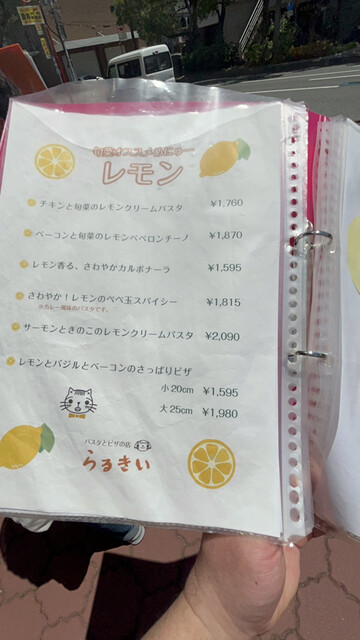 旬菜オススメめにゅー
レモン
チキンと旬菜のレモンクリームパスタ ¥1,760
ベーコンと旬菜のレモンペペロンチーノ ¥1,870
レモン香る、さわやかカルボナーラ ¥1,595
さわやか！レモンのペペ玉スパイシー ¥1,815
※カレー風味のパスタです。
サーモンときのこのレモンクリームパスタ ¥2,090
レモンとバジルとベーコンのさっぱりピザ
小20cm ¥1,595
大25cm ¥1,980
パスタとピザの店
らるきい